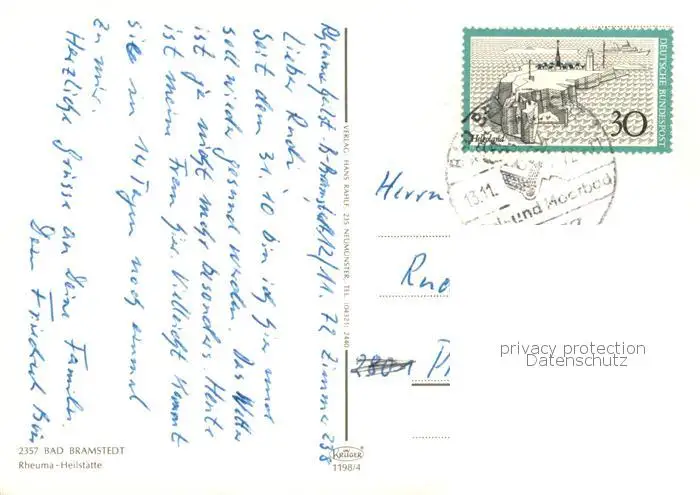 Rheumaheilst. B. Bramstedt 12/11. 72 Zimmer 238
Lieber Rudi,
Seit dem 31. 10 bin ich hier und
soll wieder gesund werden. Das Wetter
ist ja nicht mehr besonders. Heute
ist meine Frau hier. Vielleicht kommt
sie in 14 Tagen noch einmal
zu mir.
Herzliche Grüsse an Deine Familie.
Dein Friedrich
2357 BAD BRAMSTEDT
Rheuma-Heilstätte
VERLAG HANS RAHLF, 235 NEUMÜNSTER, TEL. (04321) 2440
KRÜGER
1198/4
DEUTSCHE BUNDESPOST
Helgoland
30
13.11.
und Moorbad
Herrn
2801
privacy protection
Datenschutz